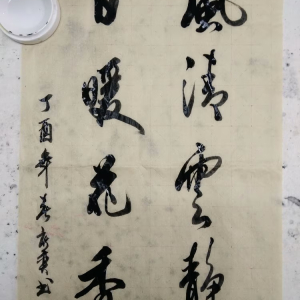 風清雲靜
日暖花香
丁酉年春